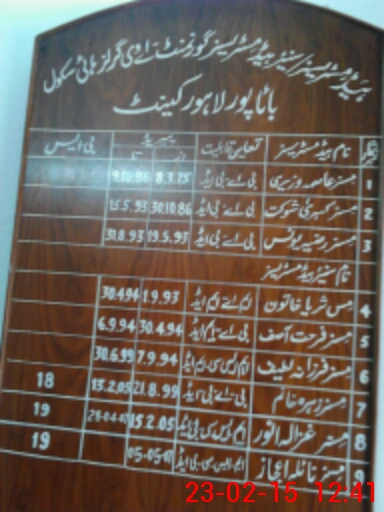 ہیڈ مسٹریسز / سینئر ہیڈ مسٹریسز گورنمنٹ اے وی گرلز ہائی سکول
باٹا پور لاہور کینٹ
نام ہیڈ مسٹریسز تعلیمی قابلیت پیریڈ پی ایس
از تا
1 مسز عاصمہ وزیری بی اے بی ایڈ 8.3.75 19.10.86
2 مسز کبریٰ شوکت بی اے بی ایڈ 30.10.86 15.5.93
3 مسز رضیہ یونس بی اے بی ایڈ 19.5.93 31.8.93
نام سینئر ہیڈ مسٹریسز
4 مس ثریا خاتون ایم اے ایم ایڈ 1.9.93 30.4.94
5 مسز فرحت آصف بی اے ایم ایڈ 30.4.94 6.9.94
6 مسز فرزانہ لطیف ایم ایس سی ایم ایڈ 7.9.94 30.6.99
7 مسز زہرہ خانم بی اے بی ایڈ 21.8.99 13.2.05 18
8 مسز غزالہ انور ایم ایس سی بی ایڈ 15.2.05 19
9 مسز نائلہ اعجاز ایم ایس سی بی ایڈ 05-05-07 19
23-02-15 12:41